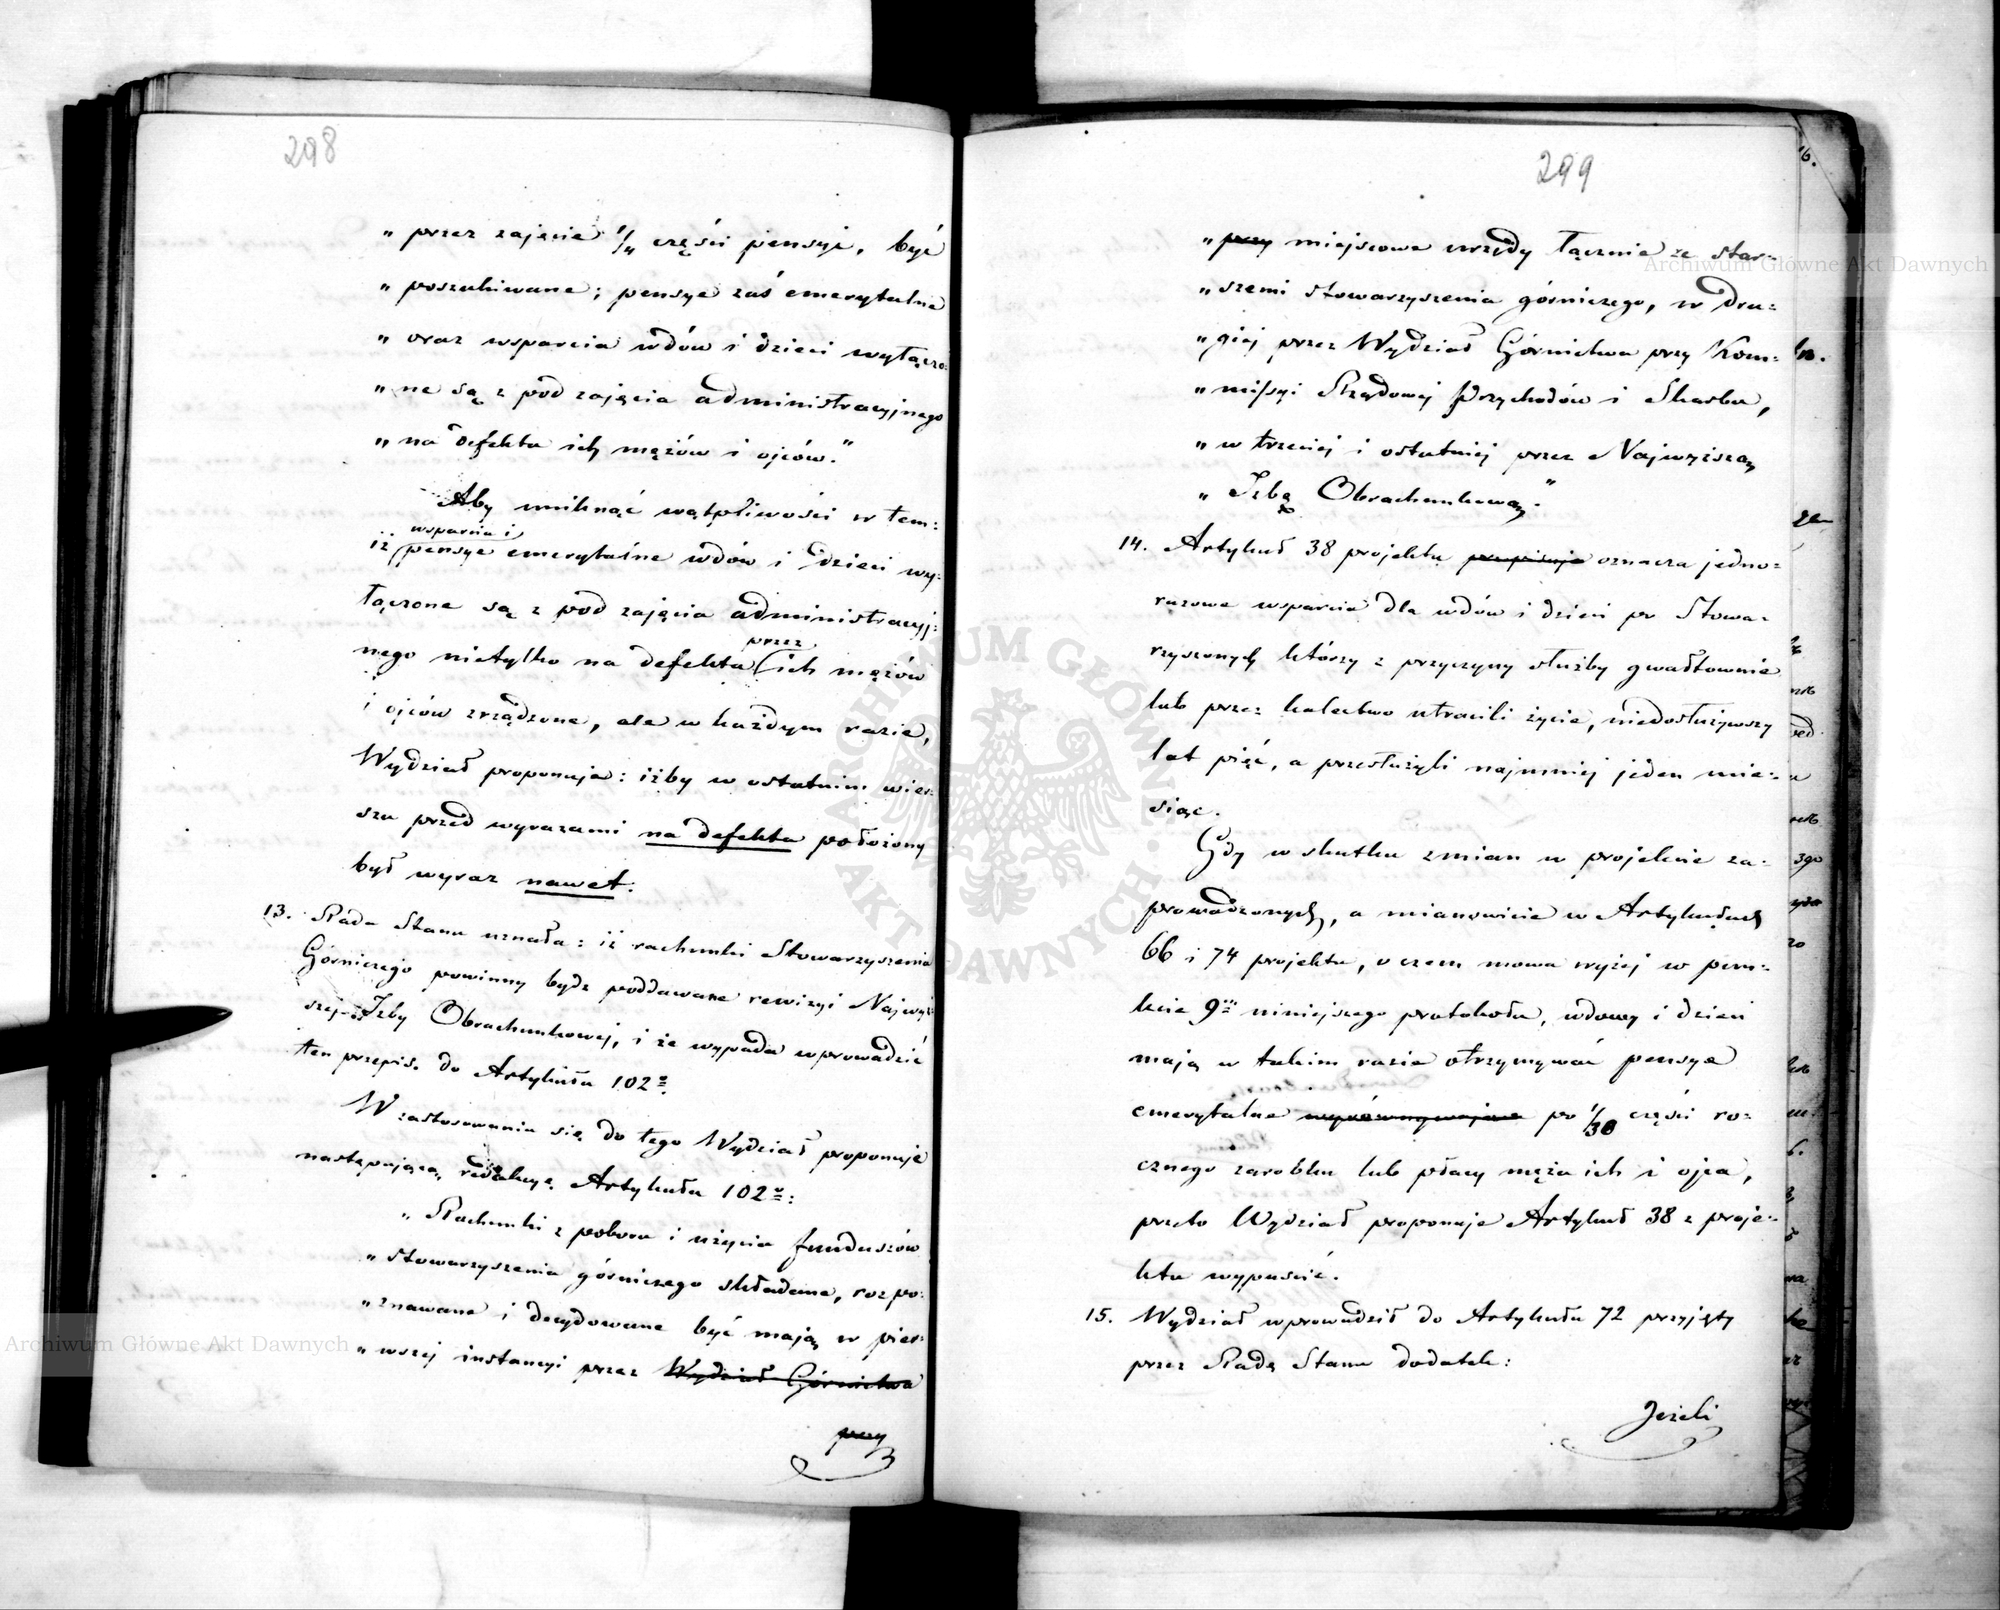 298
„ przez zajęcie 1/4 części pensyi, być
„ poszukiwane; pensye zaś emerytalne
„ oraz wsparcia wdów i dzieci wyłączo-
„ ne są z pod zajęcia administracyjnego
„ na defekta ich mężów i ojców."
Aby uniknąć wątpliwości w tem:
wsparcia i
iż pensye emerytalne wdów i dzieci wy-
łączone są z pod zajęcia administracyj-
przez
nego nietylko na defekta ich mężów
i ojców zrządzone, ale w każdym razie,
Wydział proponuje: iżby w ostatnim wier-
szu przed wyrazami na defekta położony
był wyraz nawet.
13. Rada Stanu uznała: iż rachunki Stowarzyszenia
Górniczego powinny bydź poddawane rewizyi Najwyż-
szej Izby Obrachunkowej, i że wypada wprowadzić
ten przepis do Artykułu 102º.
W zastosowaniu się do tego Wydział proponuje
następującą redakcyę Artykułu 102º:
„ Rachunki z poboru i użycia funduszów
„ stowarzyszenia górniczego składane, rozpo-
„ znawane i decydowane być mają w pier-
„ wszej instancyi przez Wydział Górnictwa
przy
299
„ przy miejscowe urzędy łącznie ze star-
„ szemi stowarzyszenia górniczego, w dru-
„ giej przez Wydział Górnictwa przy Kom-
„ missyi Rządowej Przychodów i Skarbu,
„ w trzeciej i ostatniej przez Najwyższą
„ Izbę Obrachunkową."
14. Artykuł 38 projektu przepisuje oznacza jedno-
razowe wsparcia dla wdów i dzieci po Stowa-
rzyszonych którzy z przyczyny służby gwałtownie
lub przez kalectwo utracili życie, niedosłużywszy
lat pięć, a przesłużyli najmniej jeden mie-
siąc.
Gdy w skutku zmian w projekcie za-
prowadzonych, a mianowicie w Artykułach
66 i 74 projektu, o czem mowa wyżej w pun-
kcie 9 niniejszego protokołu, wdowy i dzieci
mają w takim razie otrzymywać pensye
emerytalne wyrównywające po 1/30 części ro-
cznego zarobku lub płacy męża ich i ojca,
przeto Wydział proponuje Artykuł 38 z proje-
ktu wypuścić.
15. Wydział wprowadził do Artykułu 72 przyjęty
przez Radę Stanu dodatek:
Jeżeli
16.
Archiwum Główne Akt Dawnych
Archiwum Główne Akt Dawnych
ARCHIWUM GŁÓWNE AKT DAWNYCH